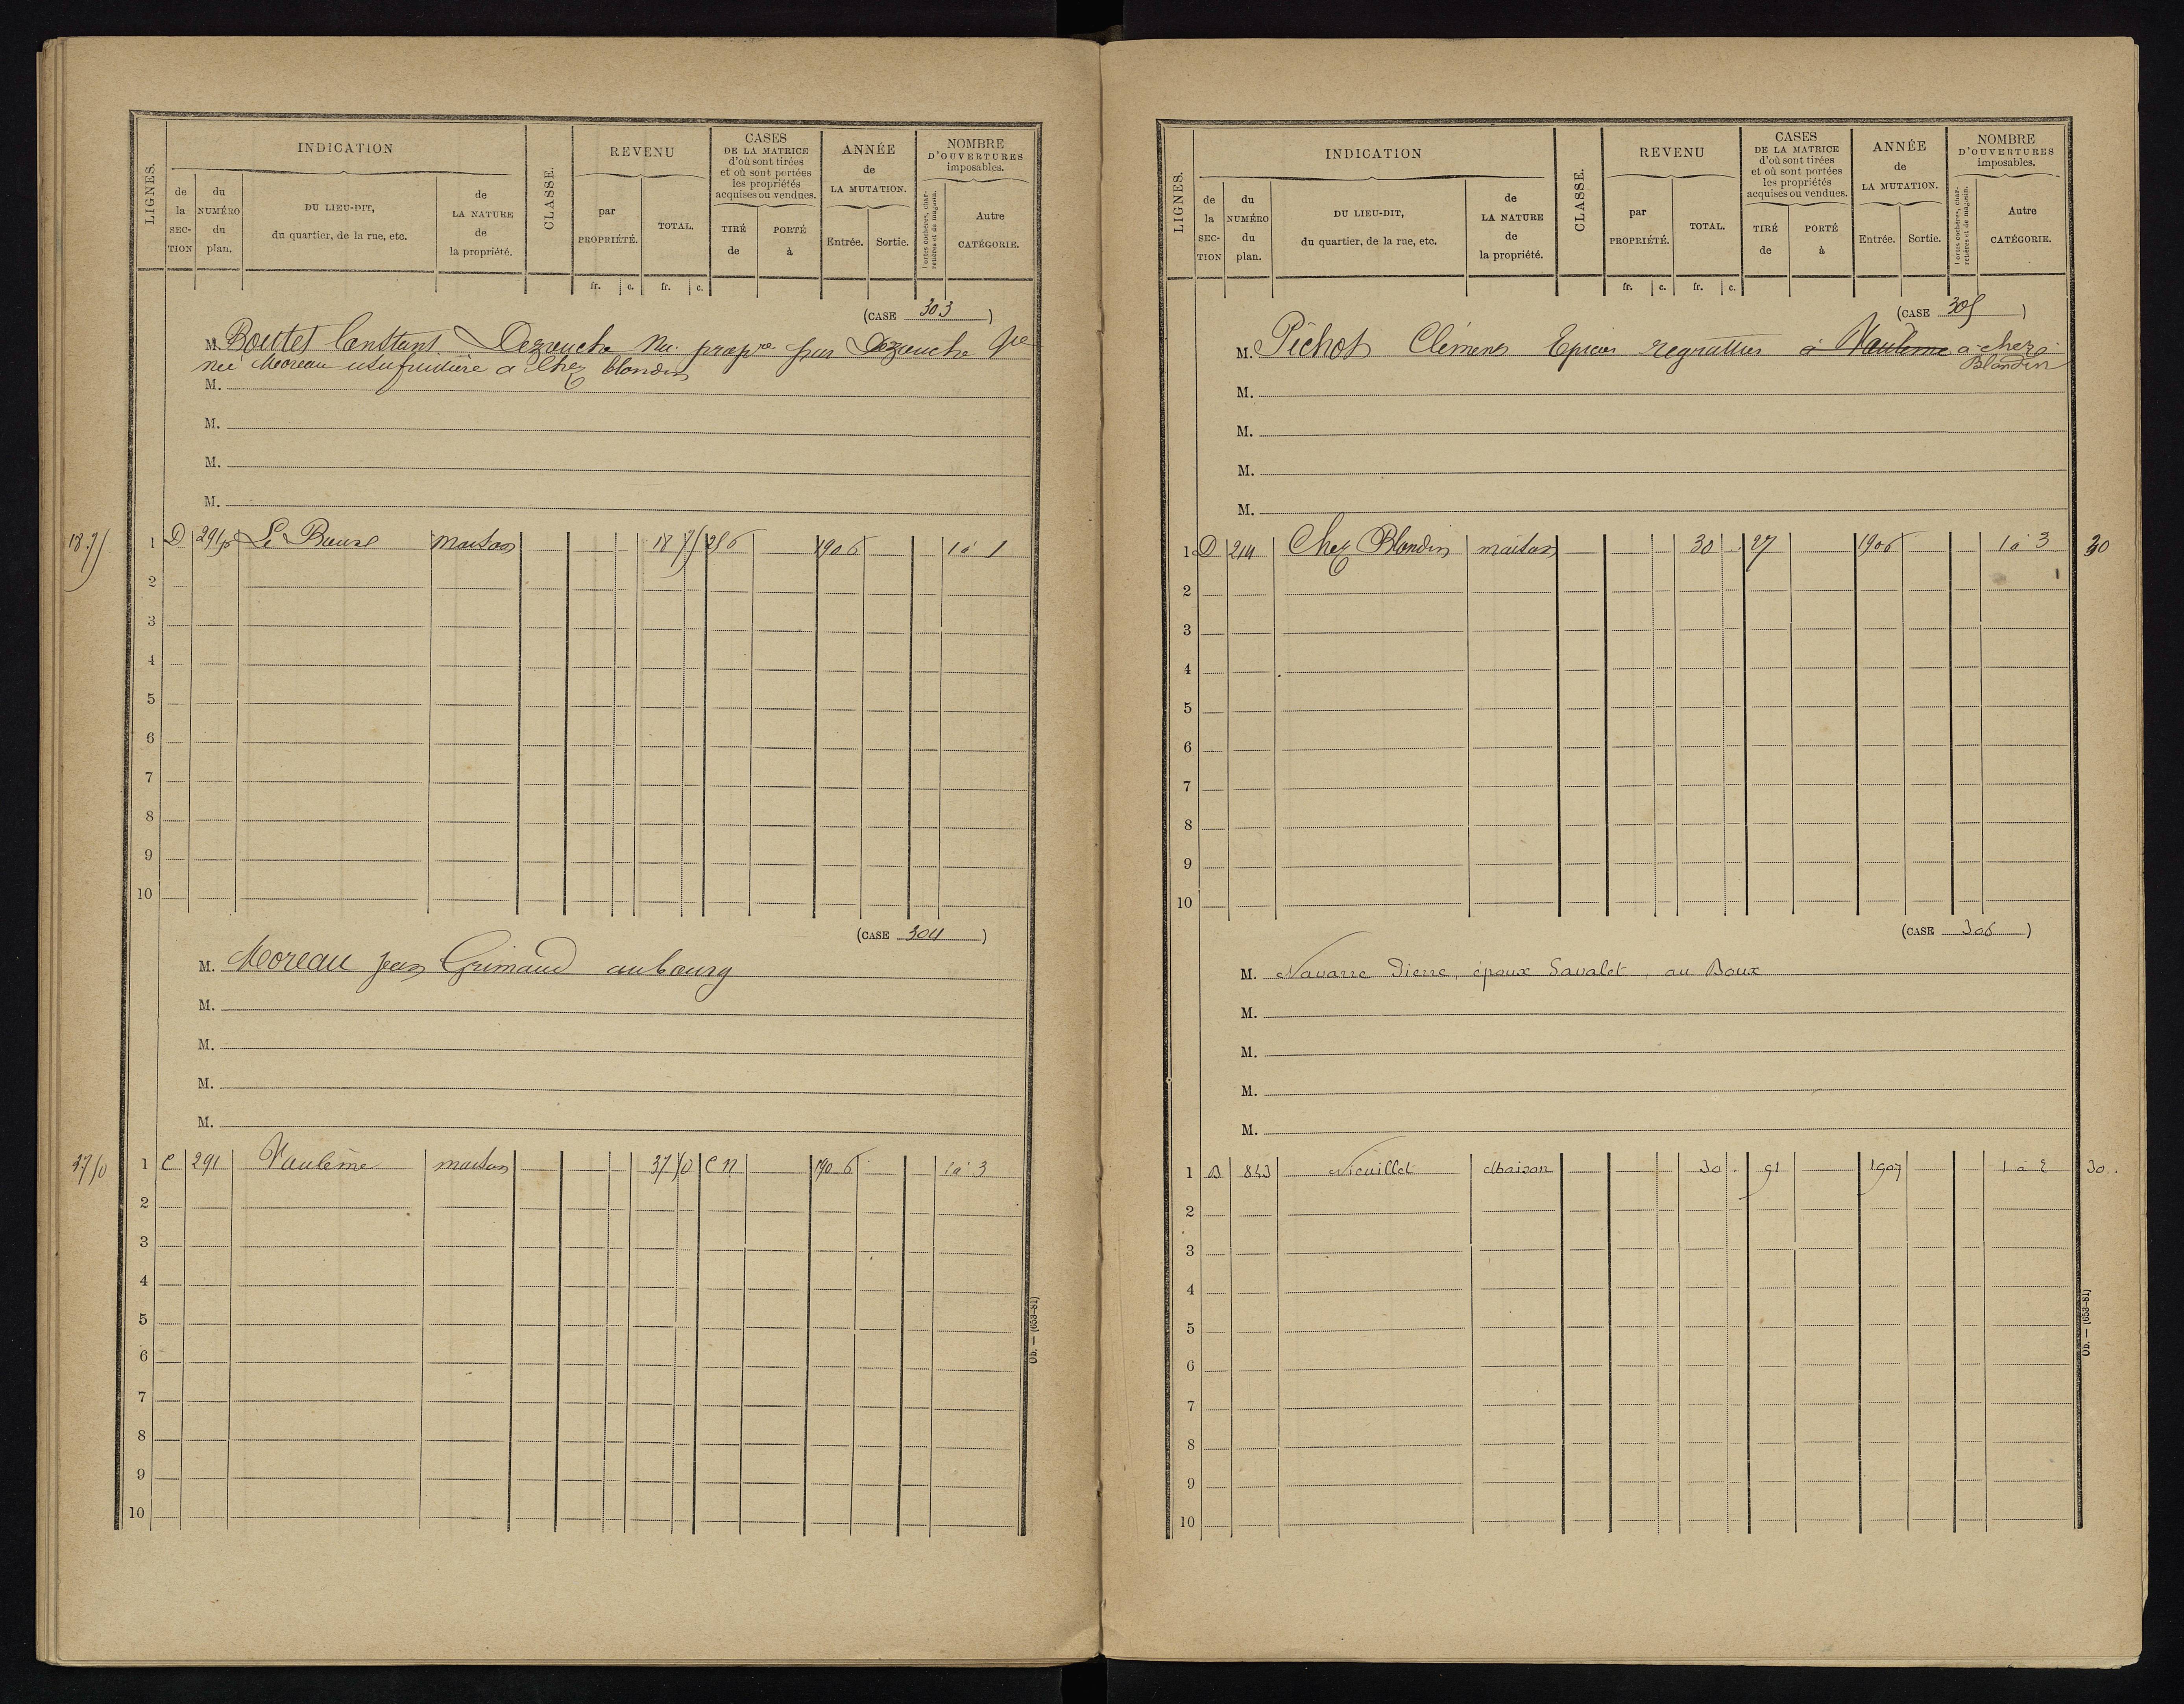 LIGNES.
INDICATION
de la SEC-TION
du NUMÉRO du plan.
DU LIEU-DIT, du quartier, de la rue, etc.
de LA NATURE de la propriété.
CLASSE.
REVENU
par PROPRIÉTÉ.
TOTAL.
CASES DE LA MATRICE d'où sont tirées et où sont portées les propriétés acquises ou vendues.
TIRÉ de
PORTÉ à
ANNÉE de LA MUTATION.
Entrée.
Sortie.
NOMBRE D'OUVERTURES imposables.
Portes cochères, char-retières et de magasin.
Autre CATÉGORIE.
fr. c. fr. c.
(CASE 303)
M. Boutet Constant Dezouche Nu. propre par Dezouche Vve
née Moreau usufruitière à Chez blondin
M.
M.
M.
M.
18.75 1 D 291p Le Boux maison 18 75 286 1906 1 à 1
2
3
4
5
6
7
8
9
10
(CASE 304)
M. Moreau Jean Grimaud au bourg
M.
M.
M.
M.
37 50 1 C 291 Vaulême maison 37 50 C N 1906 1 à 3
2
3
4
5
6
7
8
9
10
Ob. — (653-81)
LIGNES.
INDICATION
de la SEC-TION
du NUMÉRO du plan.
DU LIEU-DIT, du quartier, de la rue, etc.
de LA NATURE de la propriété.
CLASSE.
REVENU
par PROPRIÉTÉ.
TOTAL.
CASES DE LA MATRICE d'où sont tirées et où sont portées les propriétés acquises ou vendues.
TIRÉ de
PORTÉ à
ANNÉE de LA MUTATION.
Entrée.
Sortie.
NOMBRE D'OUVERTURES imposables.
Portes cochères, char-retières et de magasin.
Autre CATÉGORIE.
fr. c. fr. c.
(CASE 305)
M. Pichot Clément Epicier regrattier à Vaulême à chez
Blandin
M.
M.
M.
M.
1 D 214 Chez Blondin maison 30 . 27 1906 1 à 3 30
2
3
4
5
6
7
8
9
10
(CASE 306)
M. Navarre Pierre, époux Savalet, au Boux
M.
M.
M.
M.
1 B 843 Nieuillet Maison 30 . 91 1907 1 à 2 30.
2
3
4
5
6
7
8
9
10
Ob. — (653-81)